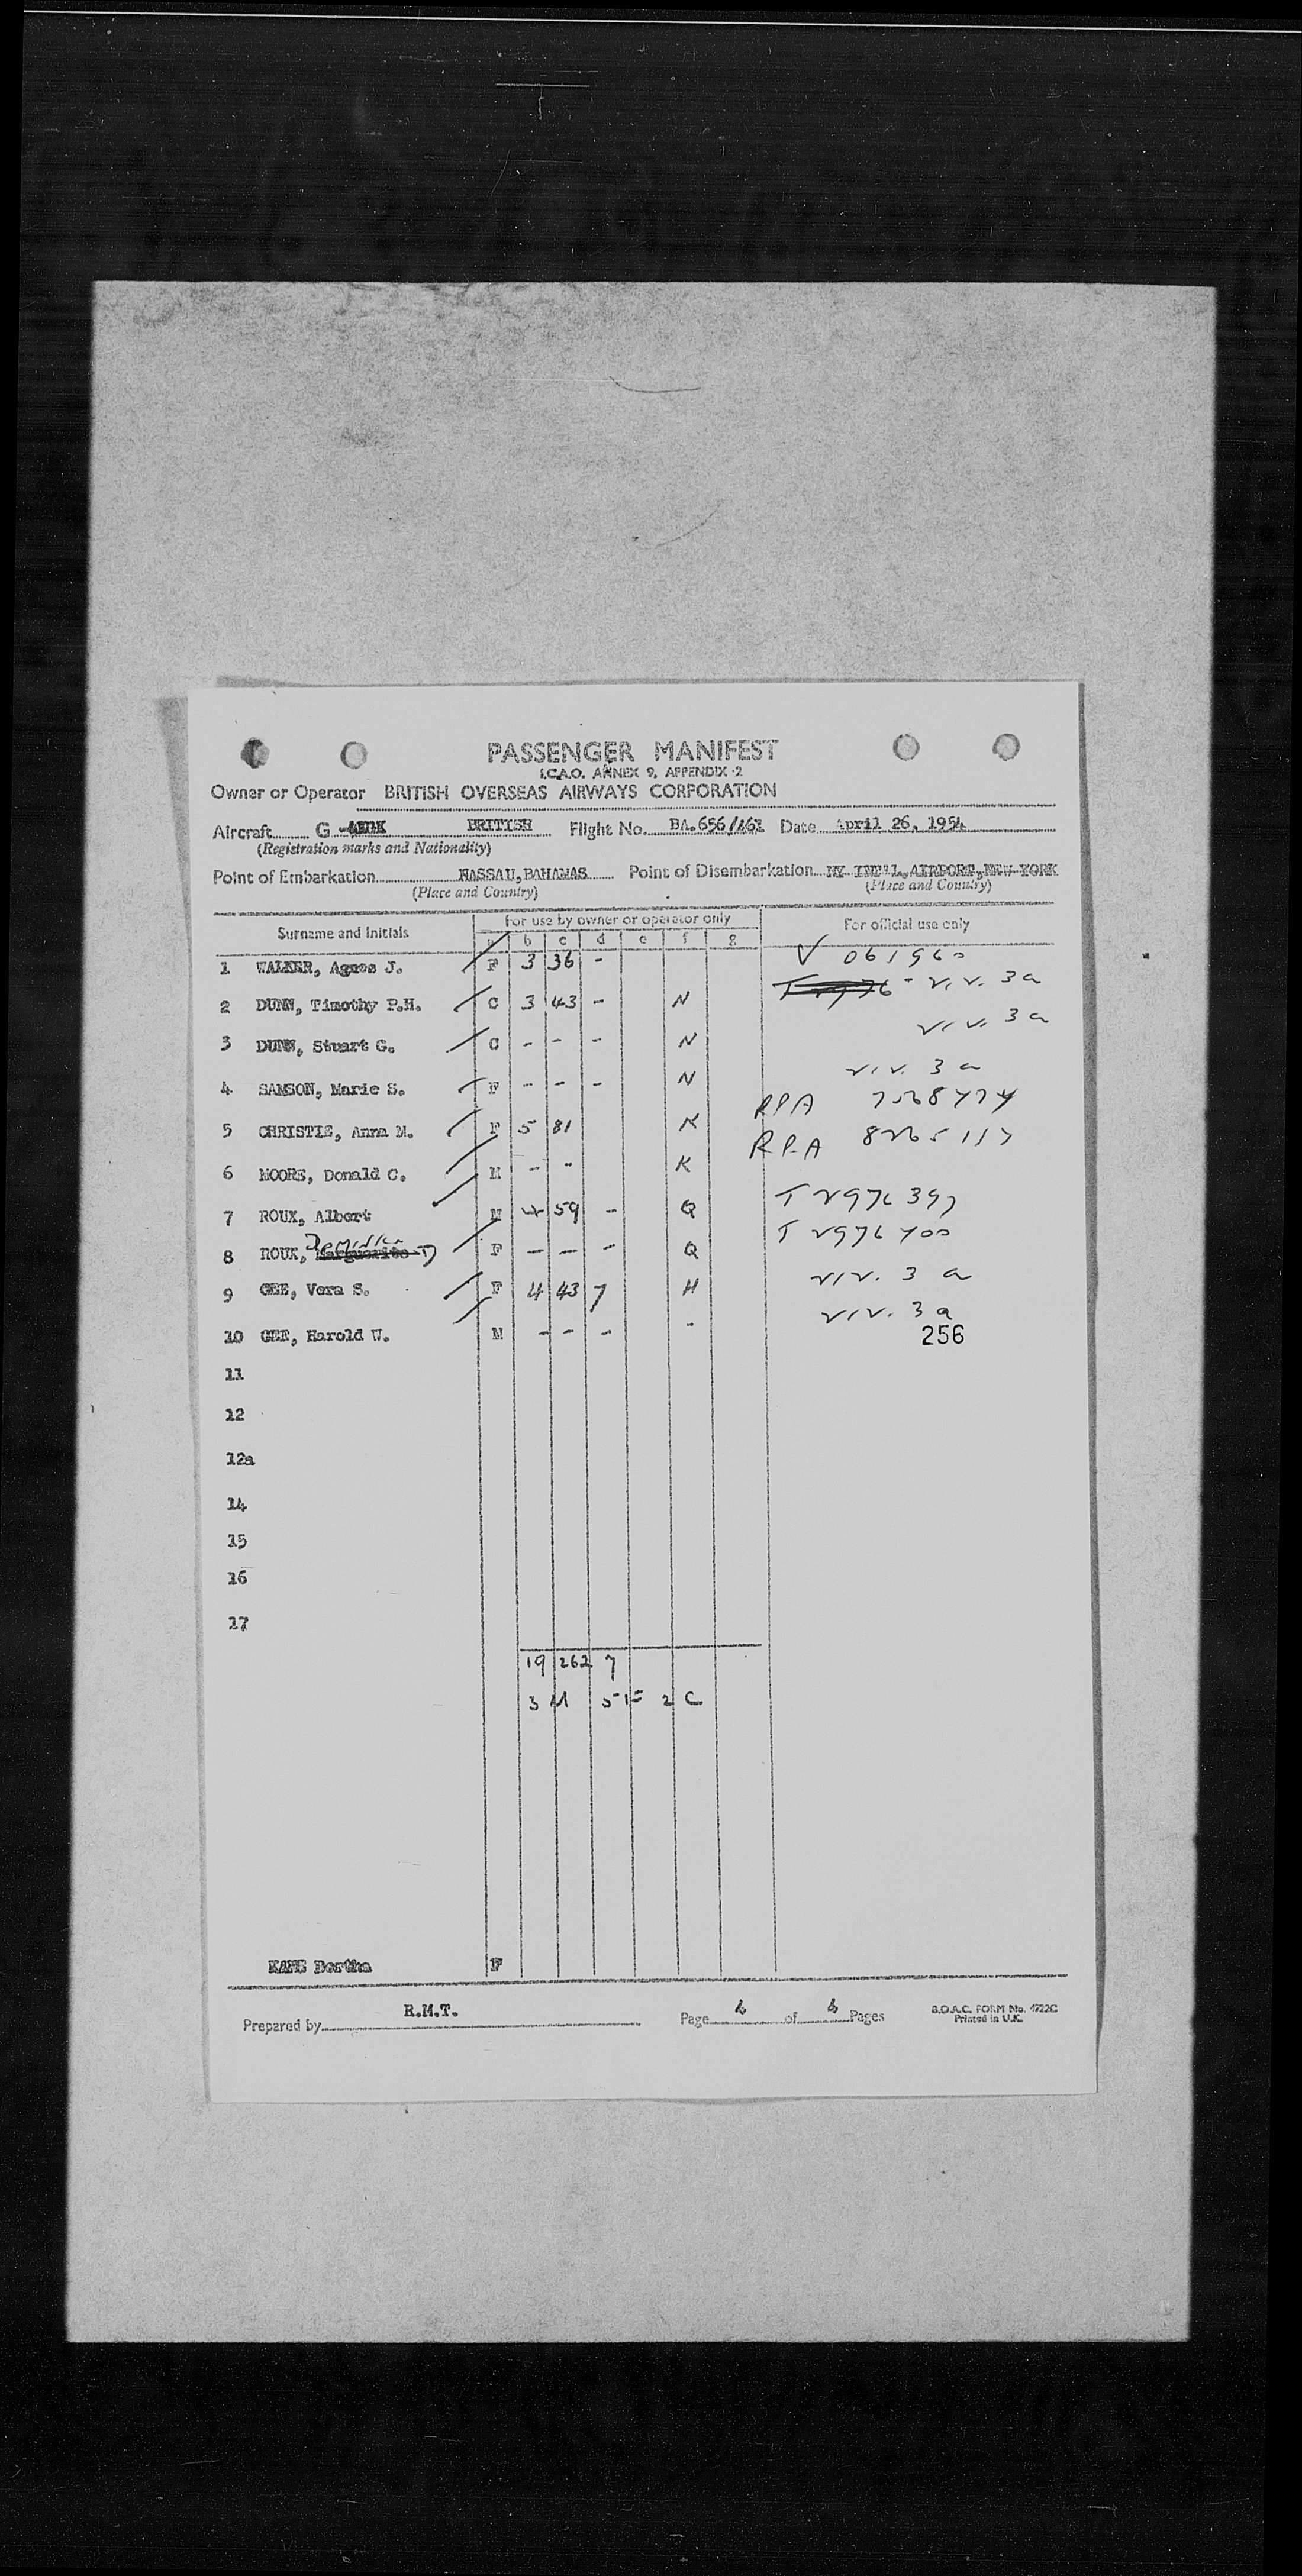 PASSENGER MANIFEST
I.C.A.O. ANNEX 9, APPENDIX 2
Owner or Operator BRITISH OVERSEAS AIRWAYS CORPORATION
Aircraft G - BRITISH Flight No. BA.656/461 Date April 26, 1954
(Registration marks and Nationality)
Point of Embarkation NASSAU, BAHAMAS Point of Disembarkation NY INT'L. AIRPORT, NEW YORK
(Place and Country) (Place and Country)
For use by owner or operator only
Surname and Initials For official use only
a b c d e f g
1 WALKER, Agnes J. F 3 36 - V 061960
2 DUNN, Timothy P.H. C 3 43 - N T 2976 - v.v. 3a
3 DUNN, Stuart G. C - - - N v.v. 3a
4 SAMSON, Marie S. F - - - N v.v. 3a
5 CHRISTIE, Anna M. F 5 81 K RPA
6 MOORE, Donald C. M - - K RPA 8265117
7 ROUX, Albert M 4 59 - Q T 2976397
8 ROUX, Marguerite D F - - - Q T 2976400
9 GEE, Vera S. F 4 43 7 H v.v. 3a
10 GEE, Harold W. M - - - - v.v. 3a
256
11
12
12a
14
15
16
17
19 262 7
3 M 5 F 2 C
KAPE Bertha F
R.M.T.
Prepared by Page of Pages
B.O.A.C. FORM No. 4722C
Printed in U.K.